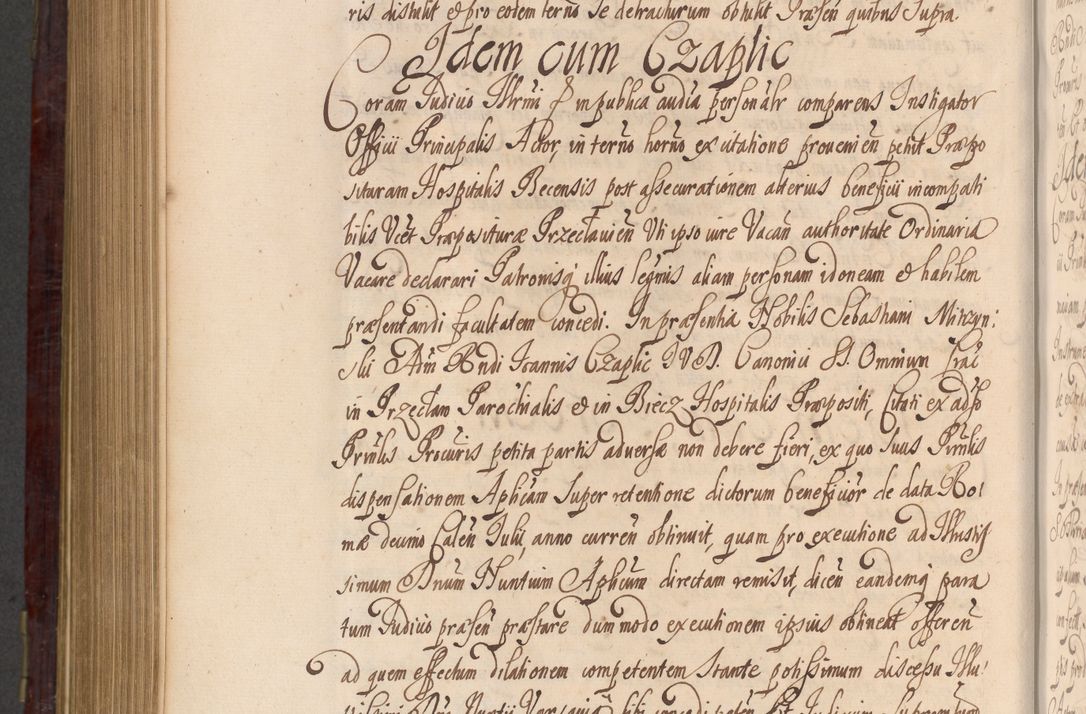 ris distulit et pro eodem terno se detracturum obtulit Præsen quibus supra.
Idem cum Czaplic
Coram Judicio Illrmi in publica audia personalr comparens Instigator
Officii Principalis Actor, in terno horno ex citatione provenien petiit Præpo
situram Hospitalis Becensis post assecurationem alterius beneficii incompati
bilis Vcet Præposituræ Przeclavien Uti ipso iure Vacan authoritate Ordinaria
Vacare declarari Patronisq illius legmis aliam personam idoneam et habilem
præsentandi facultatem concedi. In præsentia Nobilis Sebastiani Mirzyn:
ski Adm Rndi Joannis Czaplic J V D. Canonici SS. Omnium Crac
in Przeclaw Parochialis et in Biecz Hospitalis Præpositi, Citati ex adso
Prinlis Procuris petita partis adversæ non debere fieri, ex quo suus Prinlis
dispensationem Aplicam super retentione dictorum beneficior de data Ro:
mæ decimo Calen Julii, anno curren obtinuit, quam pro executione ad Illustris
simum Dnum Nuntium Aplicum directam remisit, dicen eandemq para
tum Judicio præsen præstare dummodo executionem ipsius obtineat offeren
ad quem effectum dilationem competentem stante potissimum discessu Illu: